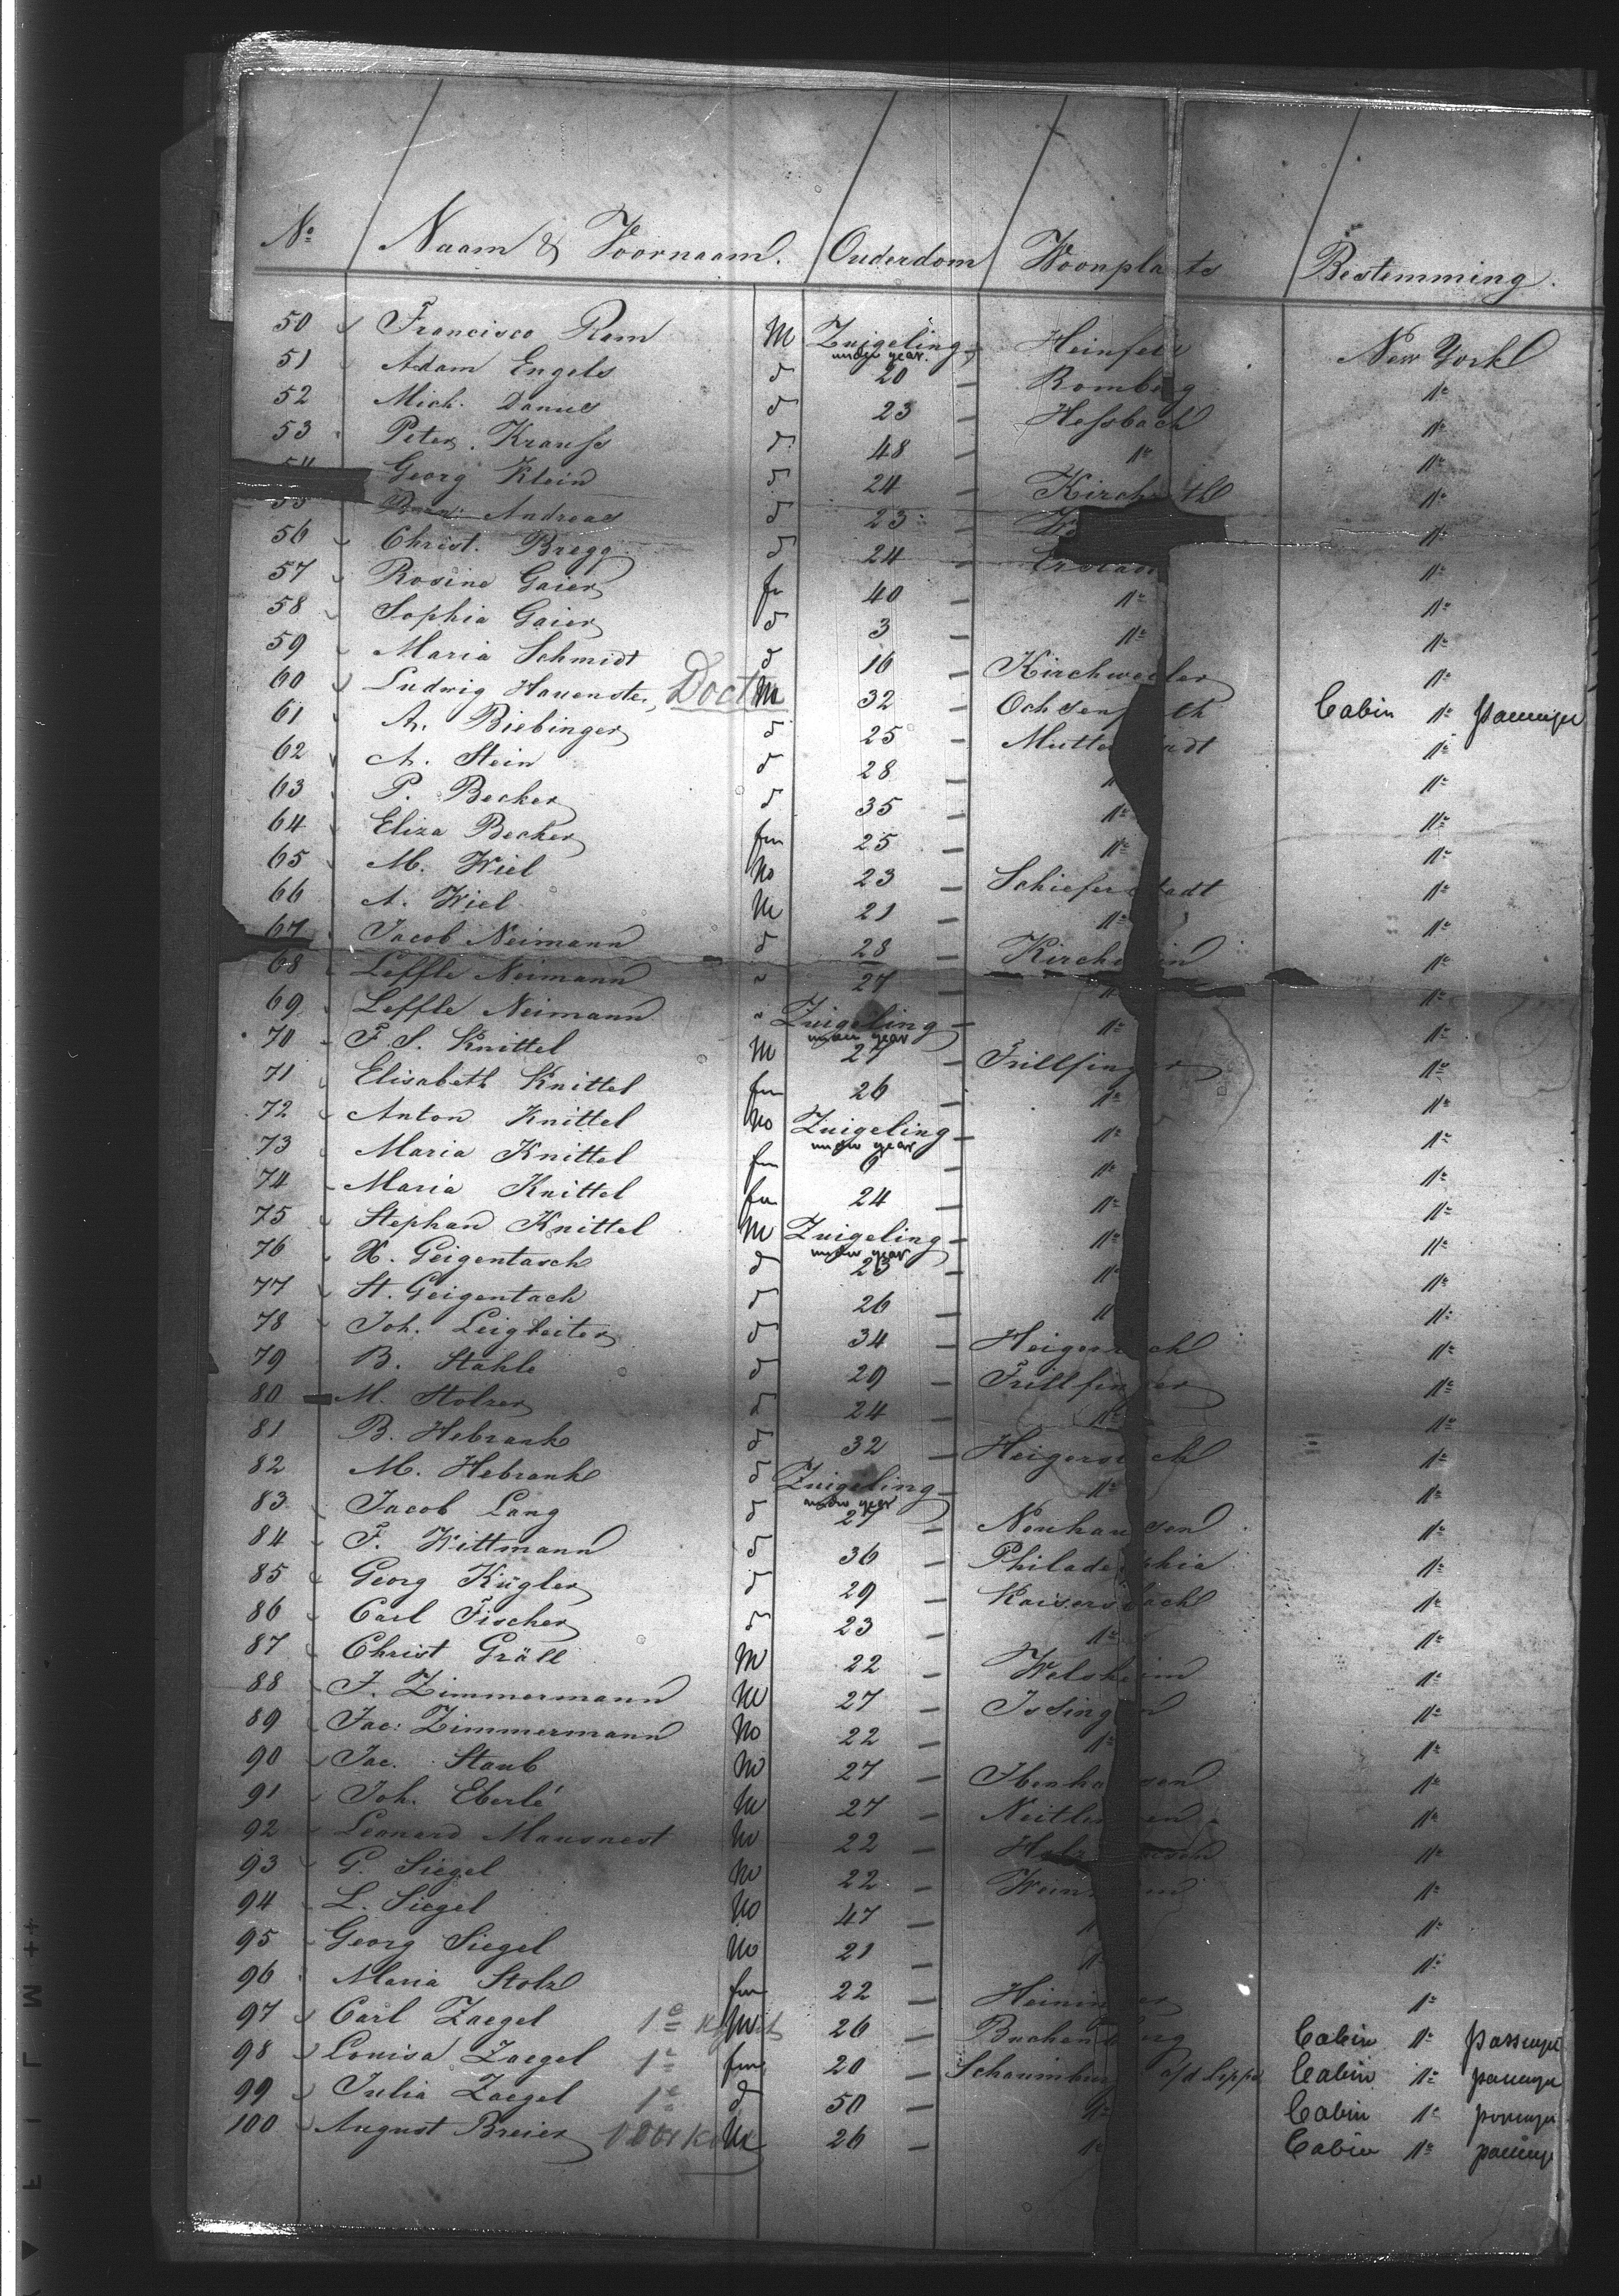 No Naam & Voornaam. Ouderdom Woonplaats Bestemming.
50 Francisca Rom M Zuigeling under year. Heinfeld New York
51 Adam Engels d 20 — Romberg "
52 Mich. Danues d 23 — Hessbach "
53 Peter Krauss d 48 — " "
54 Georg Klein d 24 — "
55 Andreas d 23 — "
56 Christ. Bregg d 24 — "
57 Rosine Gaier fm 40 — " "
58 Sophia Gaier d 3 — " "
59 Maria Schmidt d 16 Kirchweiler "
60 Ludwig Hauenste Doctor M 32 — Cabin " passenger
61 A. Biebinger d 25 — Mutterstadt "
62 A. Stein d 28 — " "
63 P. Becker d 35 — " "
64 Eliza Becker fm 25 — " "
65 M. Wiel M 23 — Schieferstadt "
66 A. Wiel M 21 — " "
67 Jacob Neimann d 28 — "
68 Leffle Neimann " 27 — " "
69 Leffle Neimann " Zuigeling under year — " "
70 F. S. Knittel M 27 — Trillfinger "
71 Elisabeth Knittel fm 26 — " "
72 Anton Knittel M Zuigeling under year — " "
73 Maria Knittel fm 6 — " "
74 Maria Knittel fm 24 — " "
75 Stephan Knittel M Zuigeling under year — " "
76 X. Geigentasch d 23 — " "
77 St. Geigentach d 26 — " "
78 Joh. Leigleiter d 34 — "
79 B. Stahle d 29 — Trillfinger "
80 M. Stolzer d 24 — " "
81 B. Hebrank d 32 — "
82 M. Hebrank d Zuigeling under year — " "
83 Jacob Lang d 27 — Neuhausen "
84 F. Wittmann d 36 — Philadelphia "
85 Georg Kügler d 29 — Kaisersbach "
86 Carl Fischer d 23 — " "
87 Christ Gräll M 22 — Welsheim "
88 J. Zimmermann M 27 — Issingen "
89 Jac: Zimmermann M 22 — " "
90 Jac. Staub M 27 — Ibenhausen "
91 Joh. Eberlé M 27 — "
92 Leonard Mausnest M 22 — "
93 G. Siegel M 22 — "
94 L. Siegel M 47 — " "
95 Georg Siegel M 21 — " "
96 Maria Stolz fm 22 — "
97 Carl Zaegel 1e M 26 — Cabin " passenger
98 Louisa Zaegel 1e fm 20 — Schaumburg a/d Lippe Cabin " passenger
99 Julia Zaegel 1e d 50 — " Cabin " passenger
100 August Breier M 26 — " Cabin " passenger